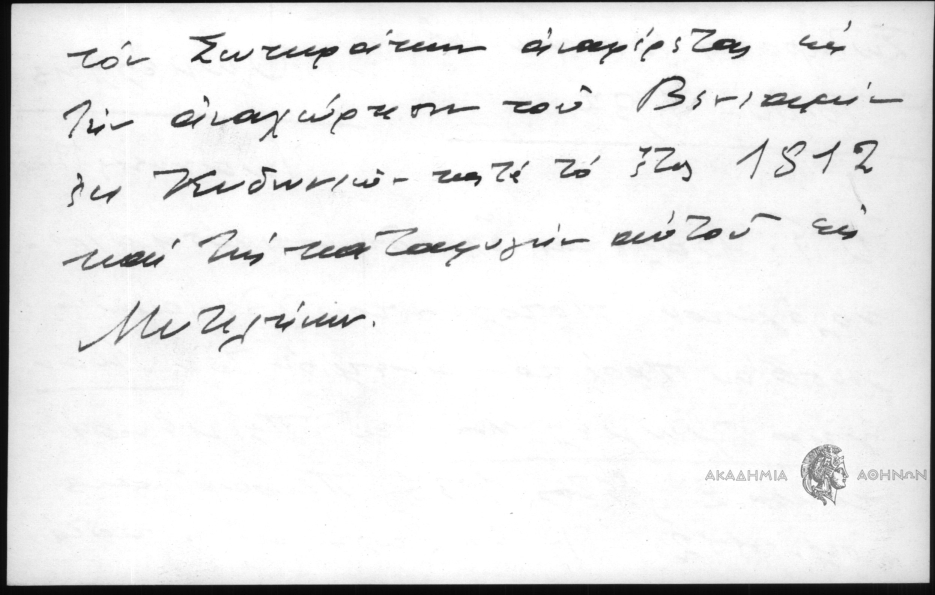 τόν Σωκράτην ἀναφέρεται εἰς
τήν ἀναχώρησιν τοῦ Βενιαμίν
ἐκ Κυδωνιῶν κατά τό ἔτος 1812
καί τήν καταφυγήν αὐτοῦ εἰς
Μυτιλήνην.
ΑΚΑΔΗΜΙΑ ΑΘΗΝΩΝ